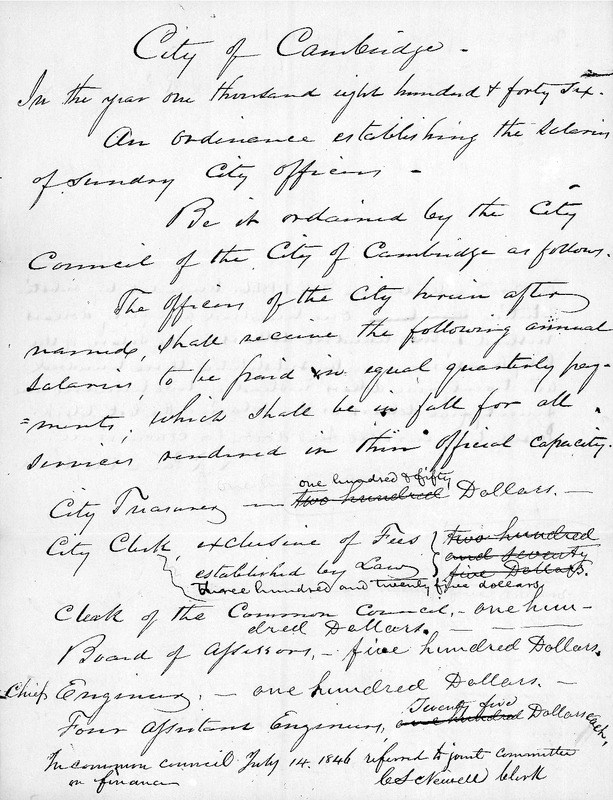 City of Cambridge -
In the year one thousand eight hundred & forty six.
An ordinance establishing the Salaries
of Sundry City officers -
Be it ordained by the City
Council of the City of Cambridge as follows.
The officers of the City herein after
named, shall receive the following annual
salaries, to be paid in equal quarterly pay-
=ments; which shall be in full for all
services rendered in their official capacity.
one hundred & fifty
City Treasurer — two hundred Dollars. —
City Clerk, exclusive of Fees } two hundred
established by Law } and seventy
five Dollars.
three hundred and twenty five dollars
Clerk of the Common Council, - one hun-
dred Dollars. —
Board of Assessors, - five hundred Dollars.
Chief Engineer, - one hundred Dollars. —
Twenty five
Four Assistant Engineers, one hundred Dollars each,
In common council July 14. 1846 referred to joint committee
on finance
C S Newell Clerk